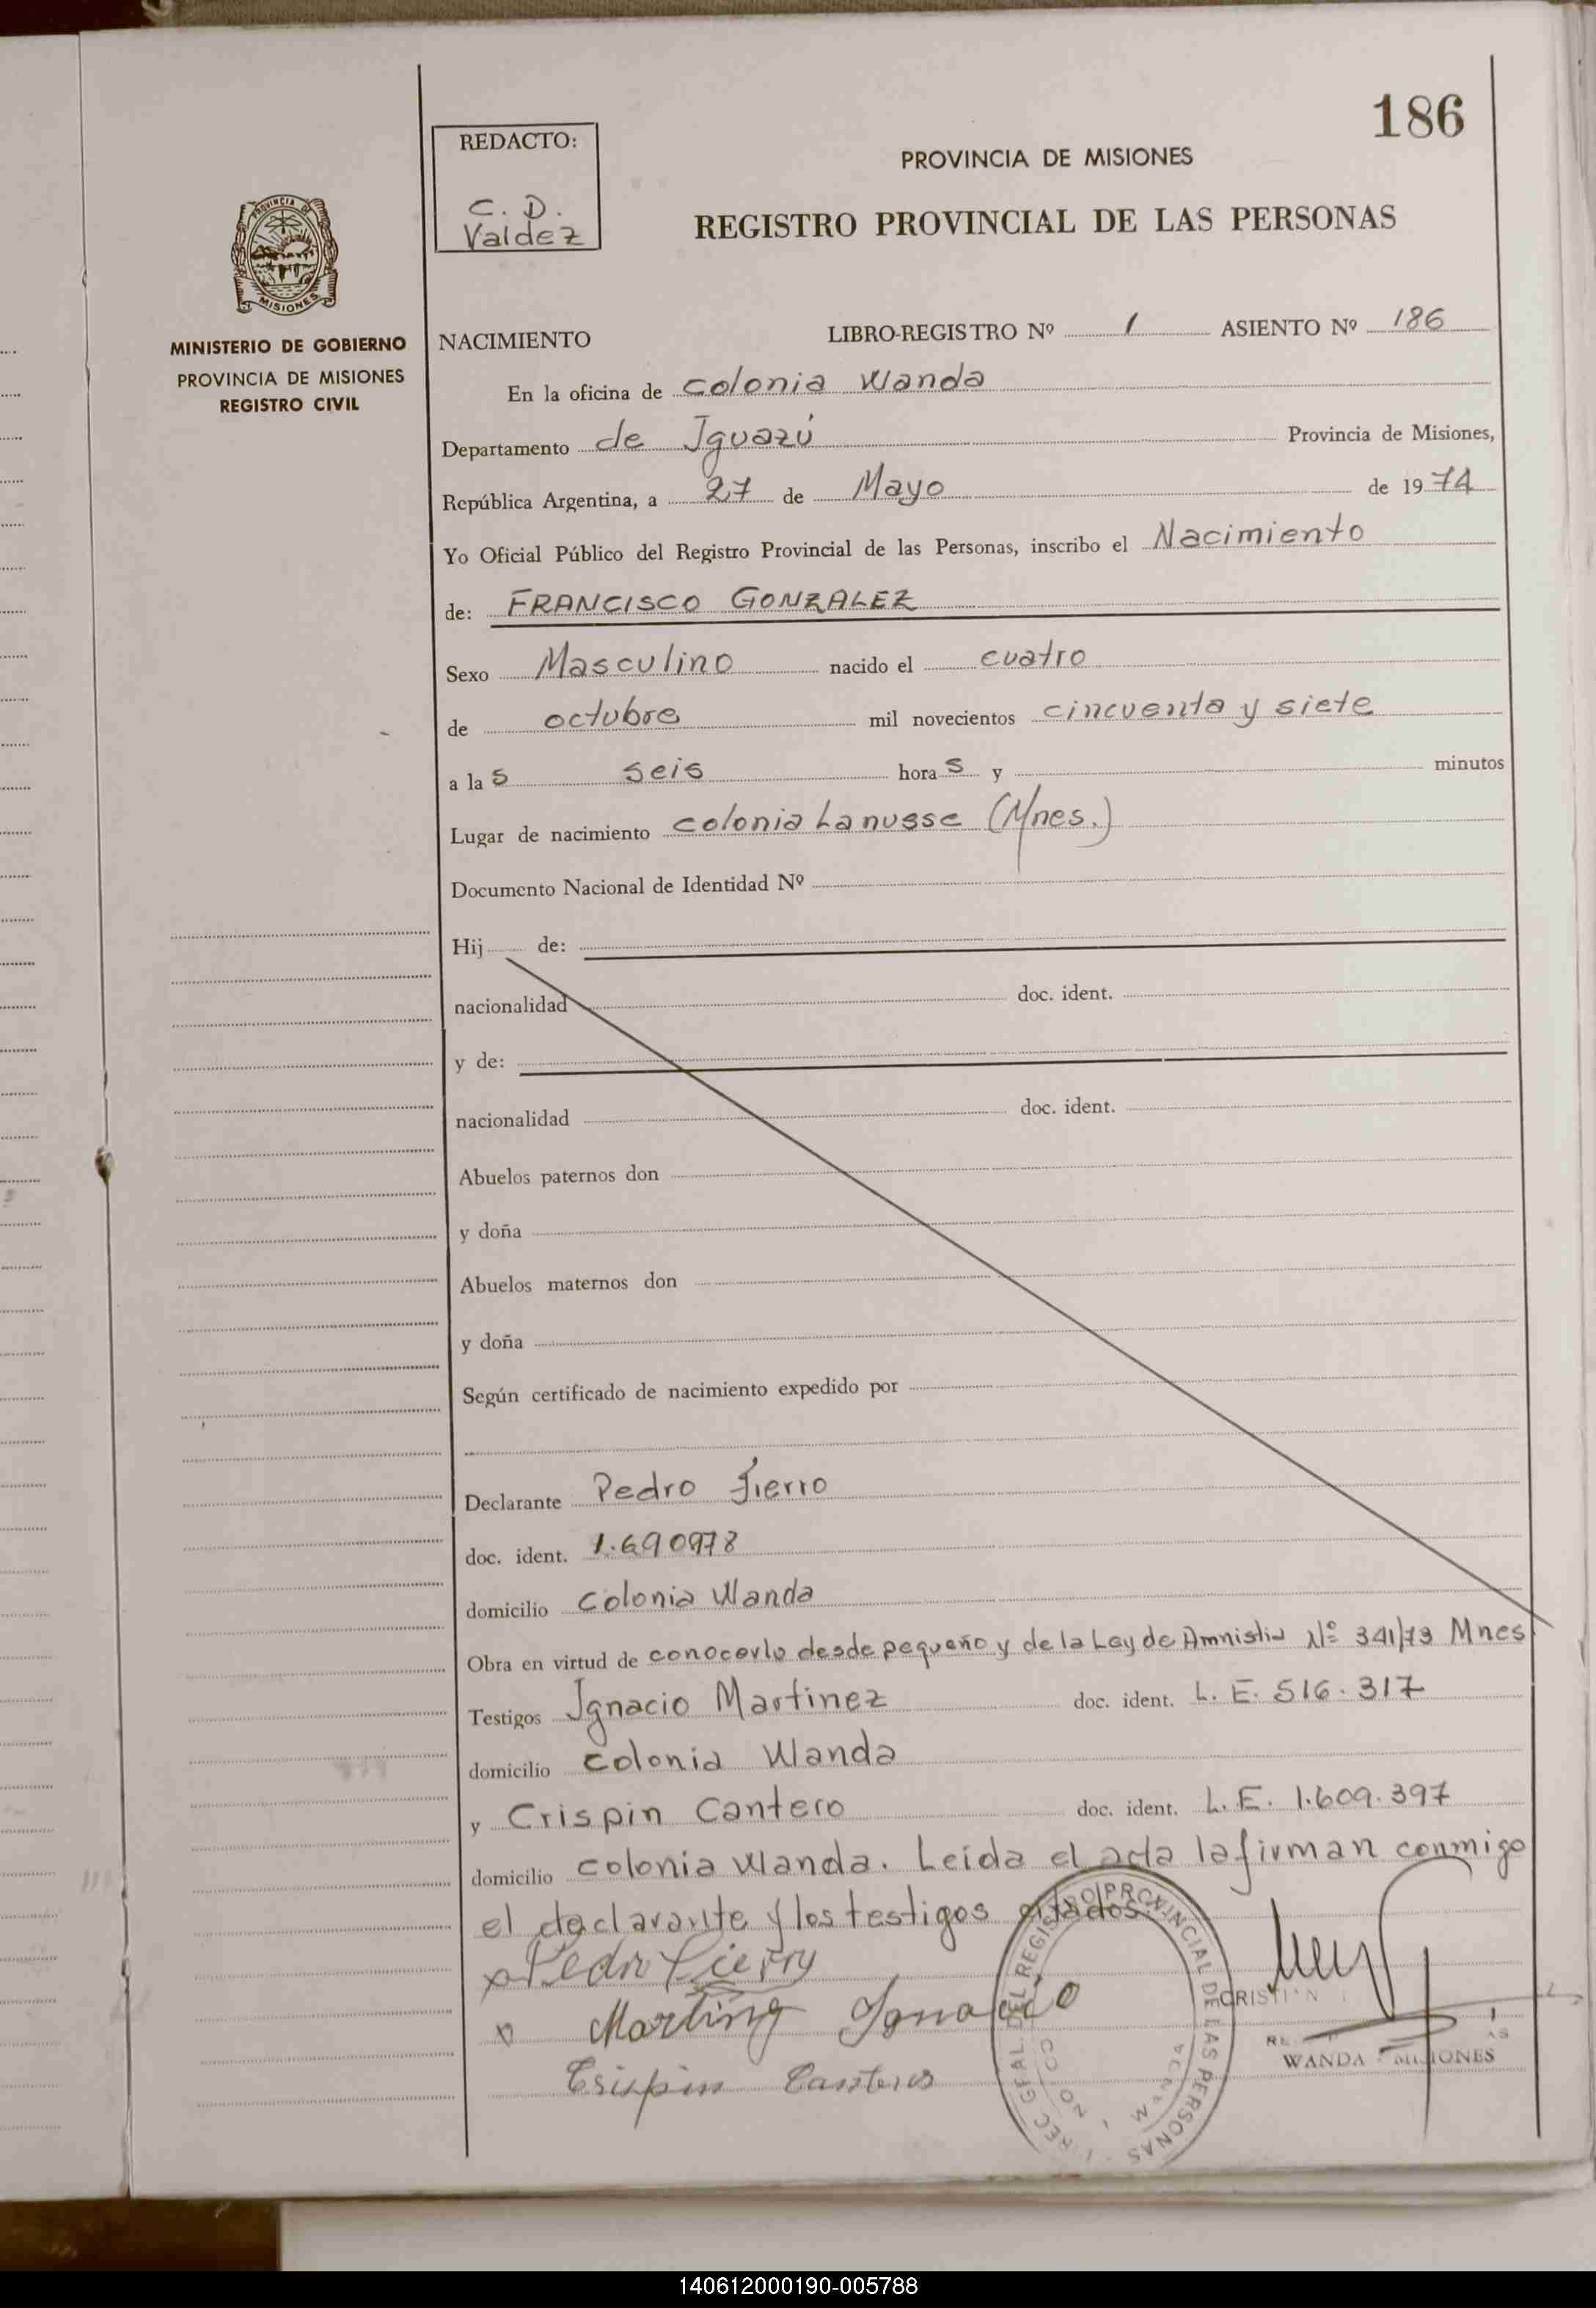 186
REDACTO:
C. D.
Valdez
PROVINCIA DE MISIONES
REGISTRO PROVINCIAL DE LAS PERSONAS
PROVINCIA DE
MISIONES
MINISTERIO DE GOBIERNO
PROVINCIA DE MISIONES
REGISTRO CIVIL
NACIMIENTO LIBRO-REGISTRO Nº 1 ASIENTO Nº 186
En la oficina de colonia Wanda
Departamento de Iguazú Provincia de Misiones,
República Argentina, a 27 de Mayo de 1974
Yo Oficial Público del Registro Provincial de las Personas, inscribo el Nacimiento
de: FRANCISCO GONZALEZ
Sexo Masculino nacido el cuatro
de octubre mil novecientos cincuenta y siete
a las seis horas y minutos
Lugar de nacimiento colonia Lanusse (Mnes.)
Documento Nacional de Identidad Nº
Hij de:
nacionalidad doc. ident.
y de:
nacionalidad doc. ident.
Abuelos paternos don
y doña
Abuelos maternos don
y doña
Según certificado de nacimiento expedido por
Declarante Pedro Fierro
doc. ident. 1.690978
domicilio Colonia Wanda
Obra en virtud de conocerlo desde pequeño y de la Ley de Amnistia Nº 341/73 Mnes
Testigos Ignacio Martinez doc. ident. L. E. 516.317
domicilio colonia Wanda
y Crispin Cantero doc. ident. L. E. 1.609.397
domicilio colonia Wanda. Leida el acta la firman conmigo
el declarante y los testigos citados.
Pedro Fierro
Martinez Ignacio
Crispin Cantero
REGISTRO PROVINCIAL DE LAS PERSONAS
WANDA
CRISTIAN
WANDA - MISIONES
140612000190-005788